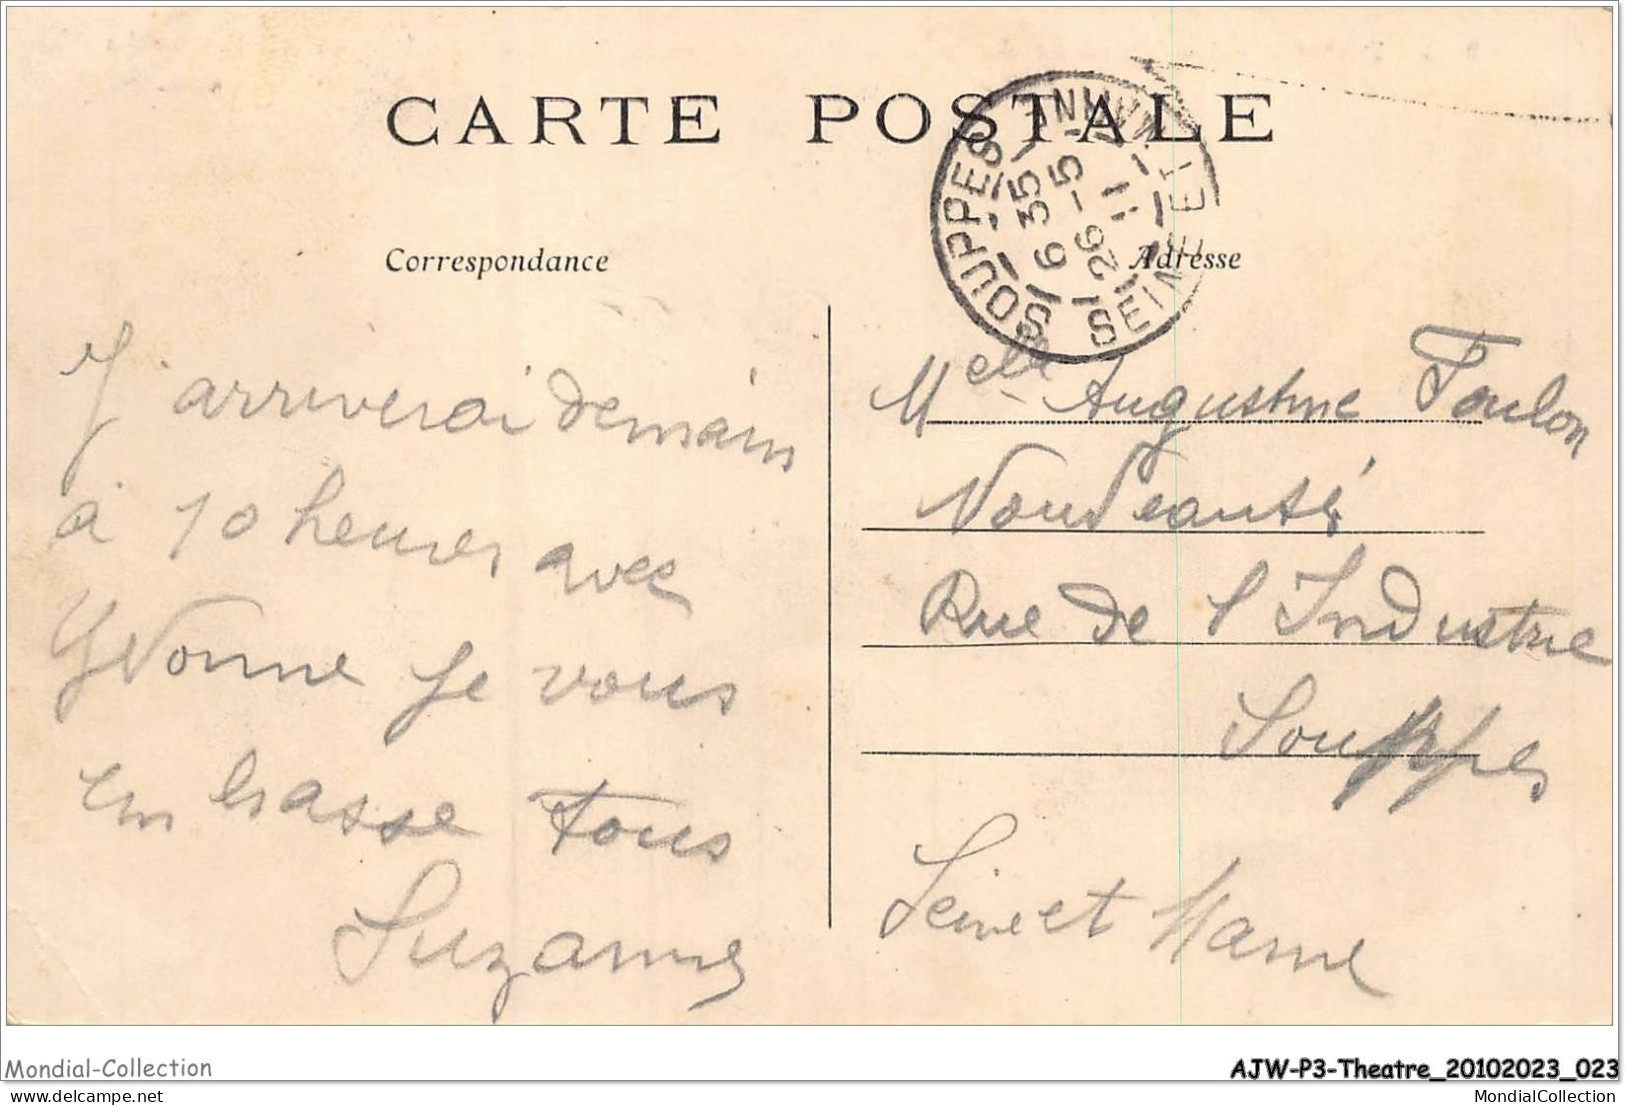 CARTE POSTALE
SOUPPES SEINE ET MARNE
6 35
26 -5
11
Correspondance
Adresse
J'arriverai demain
à 10 heures avec
Yvonne je vous
embrasse tous
Suzanne
Melle Augustine Toulon
Nouveautés
Rue de l'Industrie
Souppes
Seine et Marne
Mondial-Collection
AJW-P3-Theatre_20102023_023
www.delcampe.net
MondialCollection